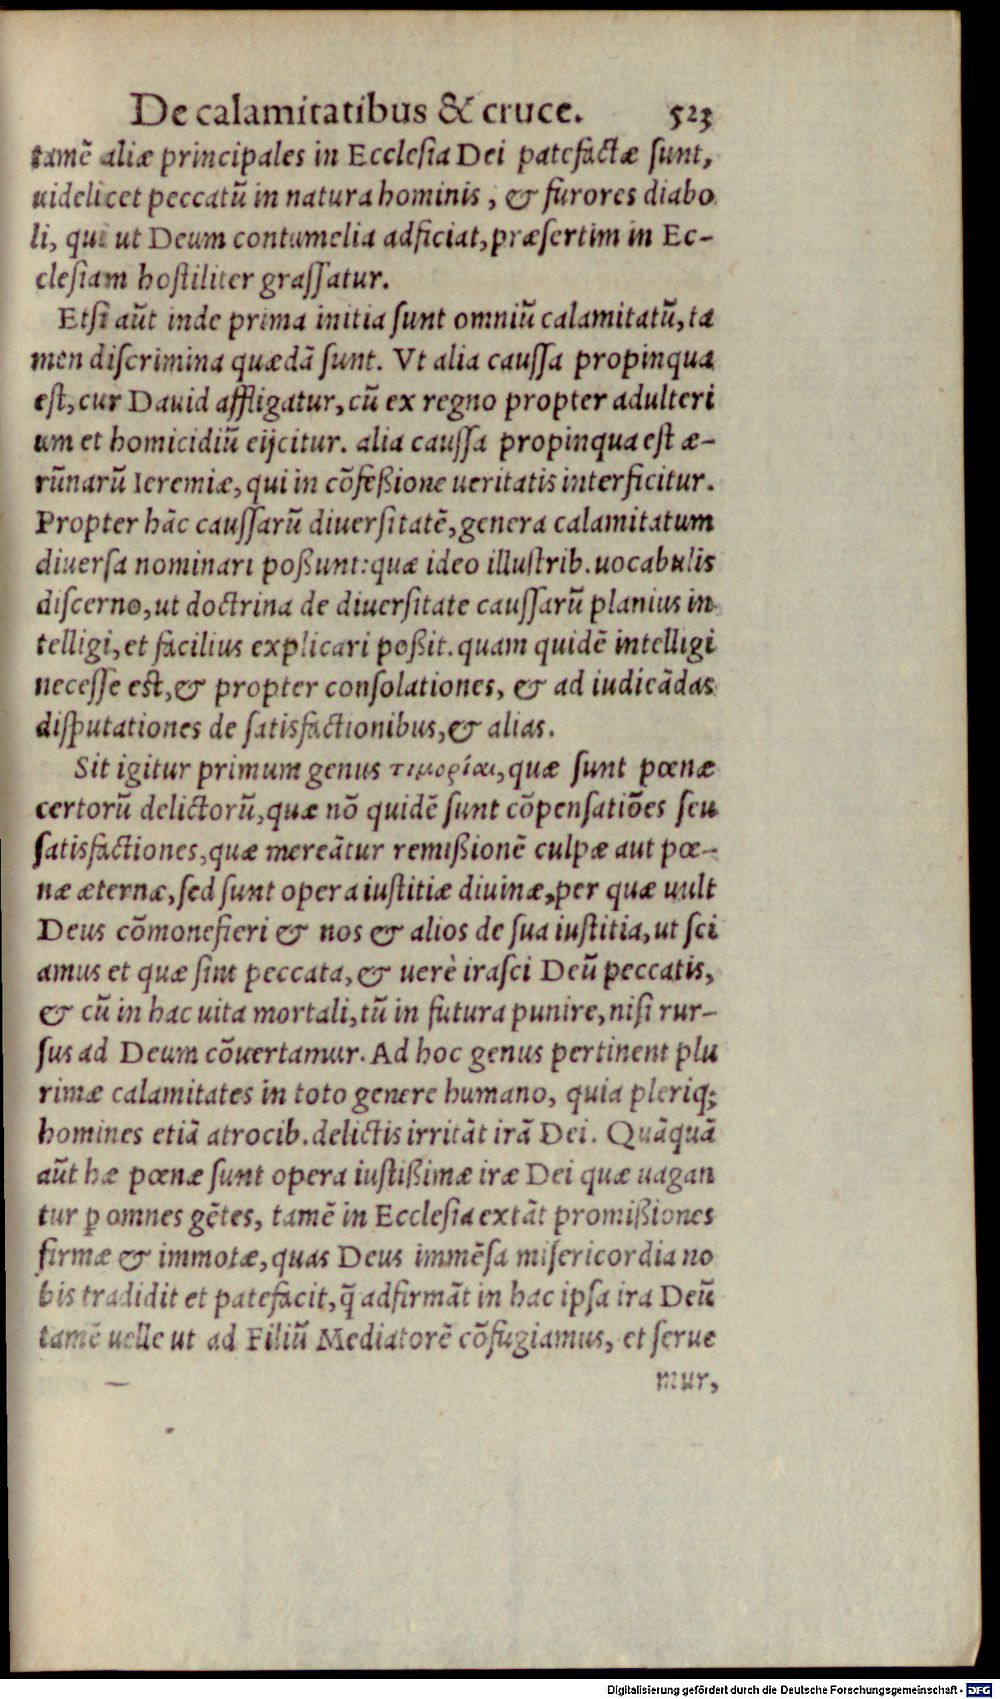 De calamitatibus & cruce. 523
tamē aliæ principales in Ecclesia Dei patefactæ sunt,
uidelicet peccatū in natura hominis, & furores diabo
li, qui ut Deum contumelia adficiat, præsertim in Ec-
clesiam hostiliter grassatur.
Etsi aūt inde prima initia sunt omniū calamitatū, ta
men discrimina quædā sunt. Vt alia caussa propinqua
est, cur Dauid affligatur, cū ex regno propter adulteri
um et homicidiū eijcitur. alia caussa propinqua est æ-
rūnarū Ieremiæ, qui in cōfeßione ueritatis interficitur.
Propter hāc caussarū diuersitatē, genera calamitatum
diuersa nominari poßunt: quæ ideo illustrib. uocabulis
discerno, ut doctrina de diuersitate caussarū planius in
telligi, et facilius explicari poßit. quam quidē intelligi
necesse est, & propter consolationes, & ad iudicādas
disputationes de satisfactionibus, & alias.
Sit igitur primum genus τιμορίαι, quæ sunt pœnæ
certorū delictorū, quæ nō quidē sunt cōpensatiōes seu
satisfactiones, quæ mereātur remißionē culpæ aut pœ-
næ æternæ, sed sunt opera iustitiæ diuinæ, per quæ uult
Deus cōmonefieri & nos & alios de sua iustitia, ut sci
amus et quæ sint peccata, & uerè irasci Deū peccatis,
& cū in hac uita mortali, tū in futura punire, nisi rur-
sus ad Deum cōuertamur. Ad hoc genus pertinent plu
rimæ calamitates in toto genere humano, quia pleriq;
homines etiā atrocib. delictis irritāt irā Dei. Quāquā
aūt hæ pœnæ sunt opera iustißimæ iræ Dei quæ uagan
tur ꝑ omnes gētes, tamē in Ecclesia extāt promißiones
firmæ & immotæ, quas Deus immēsa misericordia no
bis tradidit et patefacit, q̄ adfirmāt in hac ipsa ira Deū
tamē uelle ut ad Filiū Mediatorē cōfugiamus, et serue
mur,
Digitalisierung gefördert durch die Deutsche Forschungsgemeinschaft - DFG